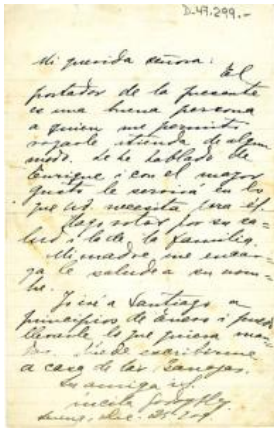 D-47.299.-
Mi querida señora:
El
portador de la presente
es una buena persona
a quien me permito
rogarle atienda de algun
modo. Le he hablado de
Enrique i con el mayor
gusto le servirá en lo
que Ud. necesita para él.
Hago votos por su sa-
lud i la de la familia.
Mi madre me encar-
ga le salude a su nom-
bre.
Iré a Santiago a
principios de Enero i puedo
llevarle lo que quiera man-
dar. Puede escribirme
a casa de las
Su amiga
Dic. 25